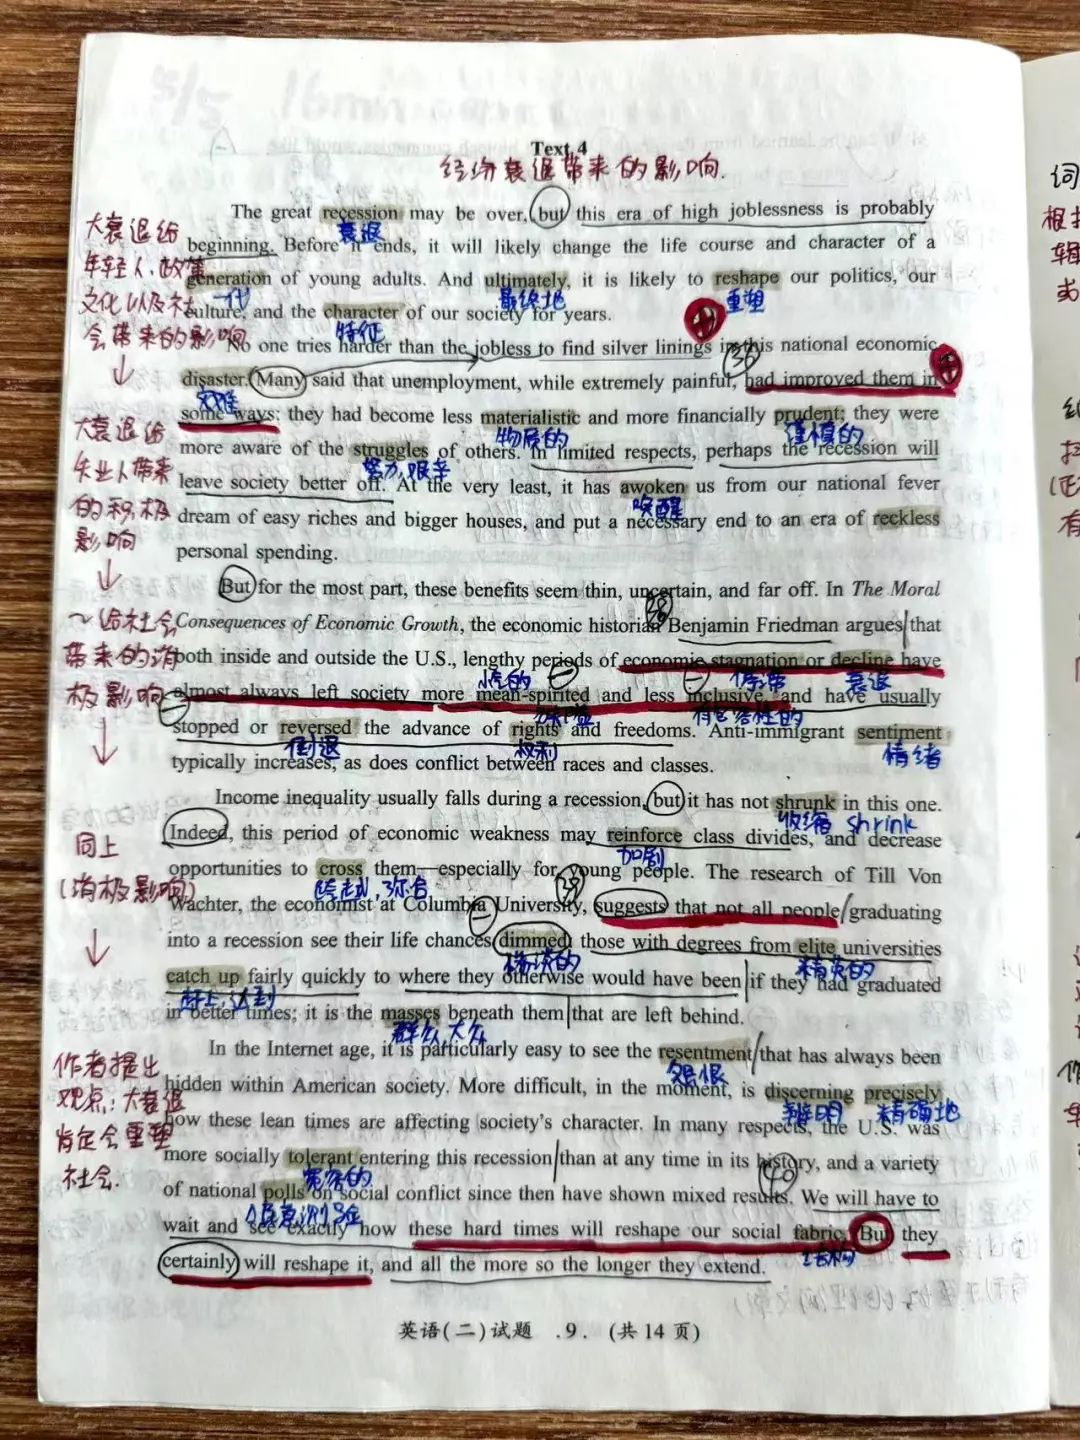 5/5 16min
Text 4
经济衰退带来的影响.
The great recession may be over, but this era of high joblessness is probably
衰退
beginning. Before it ends, it will likely change the life course and character of a
generation of young adults. And ultimately, it is likely to reshape our politics, our
一代 最终地 重塑
culture, and the character of our society for years.
特征
大衰退给
年轻人,政策
文化以及社
会带来的影响
↓
No one tries harder than the jobless to find silver linings in this national economic
36
disaster. Many said that unemployment, while extremely painful, had improved them in
灾难
some ways: they had become less materialistic and more financially prudent; they were
物质的 谨慎的
more aware of the struggles of others. In limited respects, perhaps the recession will
努力,艰辛
leave society better off. At the very least, it has awoken us from our national fever
唤醒
dream of easy riches and bigger houses, and put a necessary end to an era of reckless
personal spending.
大衰退给
失业人带来
的积极
影响
↓
But for the most part, these benefits seem thin, uncertain, and far off. In The Moral
38
Consequences of Economic Growth, the economic historian Benjamin Friedman argues that
both inside and outside the U.S., lengthy periods of economic stagnation or decline have
停滞 衰退
almost always left society more mean-spirited and less inclusive, and have usually
有包容性的
stopped or reversed the advance of rights and freedoms. Anti-immigrant sentiment
倒退 权利 情绪
typically increases, as does conflict between races and classes.
~给社会
带来的消
极影响
↓
Income inequality usually falls during a recession, but it has not shrunk in this one.
收缩 shrink
Indeed, this period of economic weakness may reinforce class divides, and decrease
加剧
opportunities to cross them—especially for young people. The research of Till Von
跨越,弥合 39
Wachter, the economist at Columbia University, suggests that not all people graduating
into a recession see their life chances dimmed: those with degrees from elite universities
暗淡的 精英的
catch up fairly quickly to where they otherwise would have been if they had graduated
赶上,达到
in better times; it is the masses beneath them that are left behind.
群众,大众
同上
(消极影响)
↓
In the Internet age, it is particularly easy to see the resentment that has always been
怨恨
hidden within American society. More difficult, in the moment, is discerning precisely
辨明 精确地
how these lean times are affecting society's character. In many respects, the U.S. was
more socially tolerant entering this recession than at any time in its history, and a variety
宽容的 40
of national polls on social conflict since then have shown mixed results. We will have to
民意测验
wait and see exactly how these hard times will reshape our social fabric. But they
结构
certainly will reshape it, and all the more so the longer they extend.
作者提出
观点:大衰退
肯定会重塑
社会.
英语(二)试题 .9. (共14页)
词
根
辑
有
作